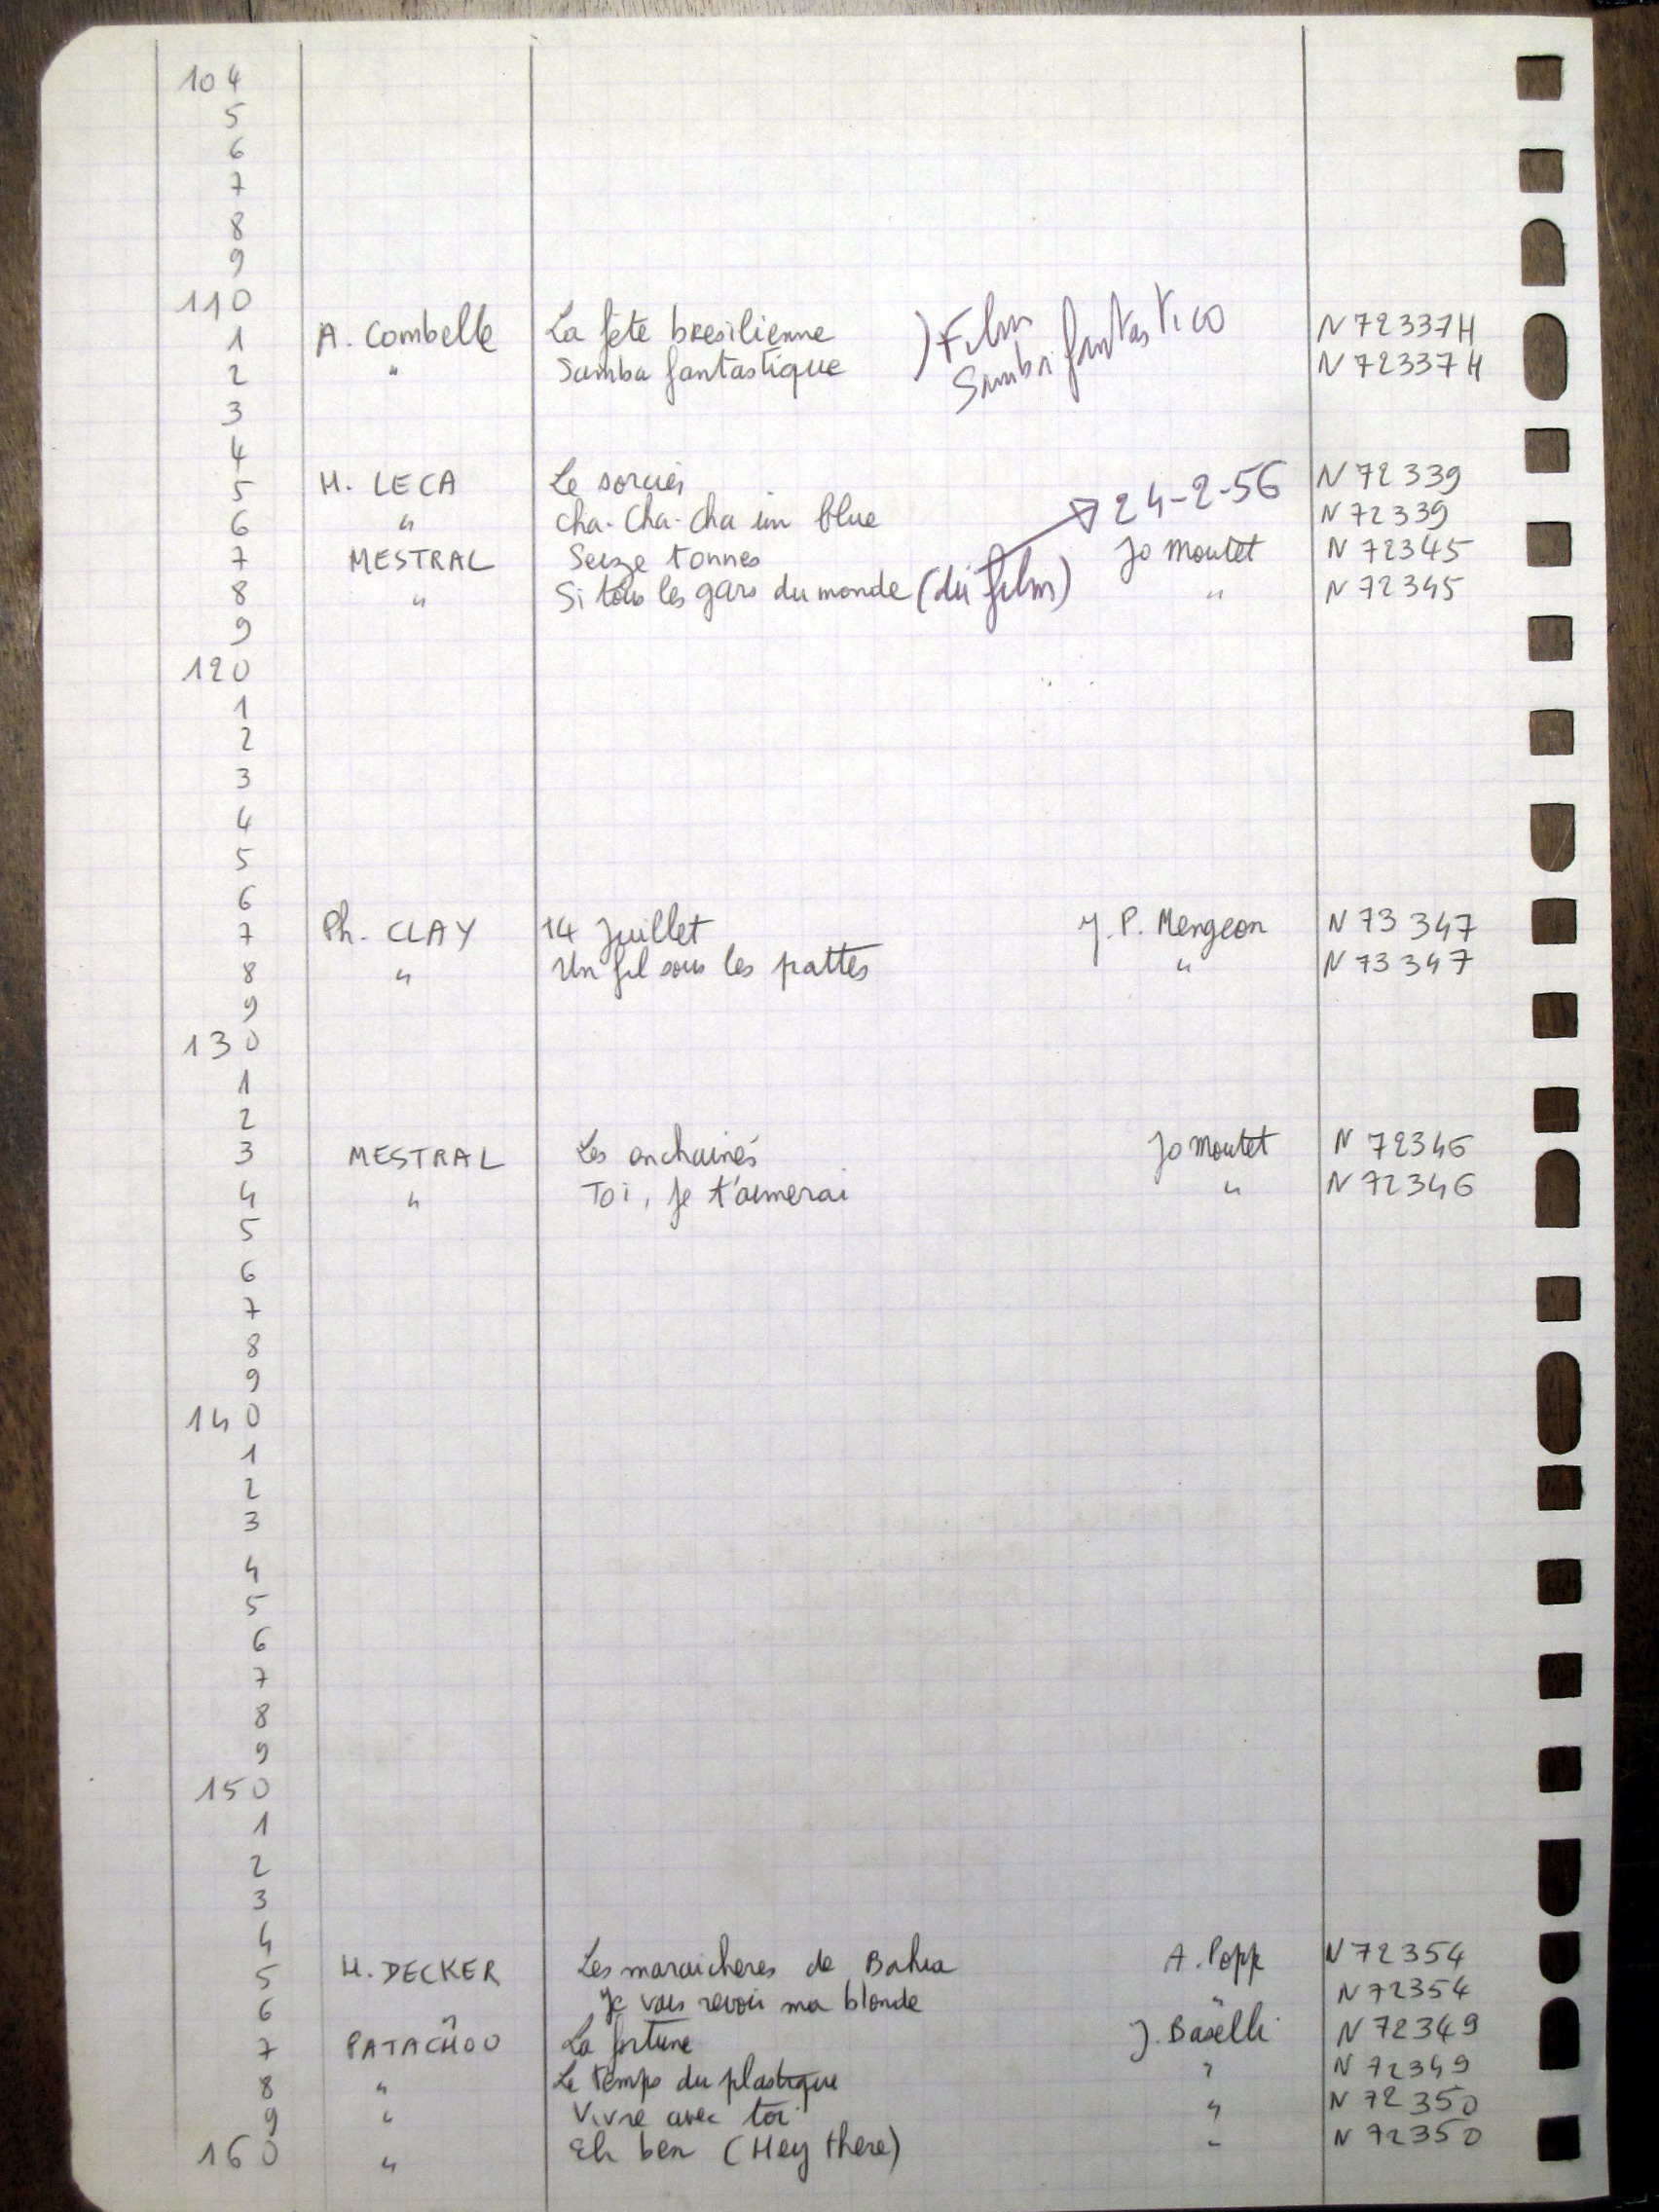 104
5
6
7
8
9
110
1 A. Combelle La fête bresilienne ) Film N 72337H
2 " Samba fantastique Samba fantastico N 72337H
3
4
5 H. LECA Le sorcier 24-2-56 N 72339
6 " Cha-Cha-Cha in blue N 72339
7 MESTRAL Seize tonnes Jo Moutet N 72345
8 " Si tous les gars du monde (du film) " N 72345
9
120
1
2
3
4
5
6
7 Ph. CLAY 14 Juillet J. P. Mengeon N 73 347
8 " Un fil sous les pattes " N 73 347
9
130
1
2
3 MESTRAL Les enchainés Jo Moutet N 72346
4 " Toi, je t'aimerai " N 72346
5
6
7
8
9
140
1
2
3
4
5
6
7
8
9
150
1
2
3
4
5 H. DECKER Les maraicheres de Bahia A. Popp N 72354
6 " Je vais revoir ma blonde " N 72354
7 PATACHOU La fortune J. Baselli N 72349
8 " Le temps du plastique " N 72349
9 " Vivre avec toi " N 72350
160 " Eh ben (Hey there) " N 72350